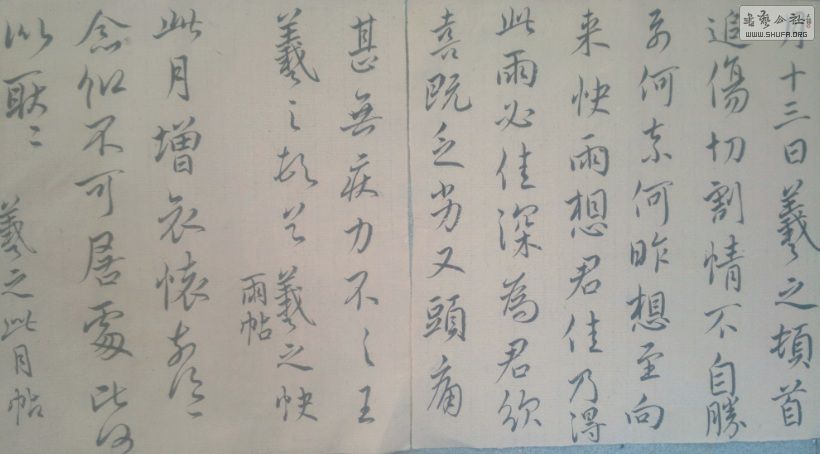 月十三日羲之頓首
追傷切割情不自勝
奈何奈何昨想至向
来快雨想君佳乃得
此雨必佳深為君欣
喜既乏劣又頭痛
甚無疾力不〻王
羲之頓首 羲之快
雨帖
此月增哀懷
念似不可居處比何
以耿〻 羲之此月帖
书艺公社
WWW.SHUFA.ORG